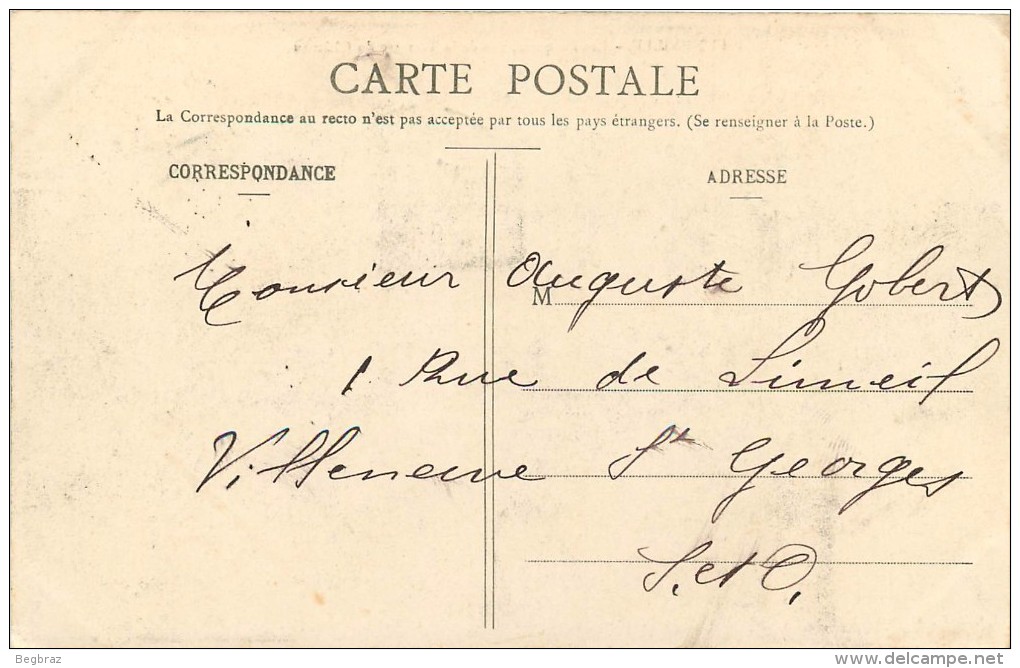 CARTE POSTALE
La Correspondance au recto n'est pas acceptée par tous les pays étrangers. (Se renseigner à la Poste.)
CORRESPONDANCE
ADRESSE
Monsieur Auguste Gobert
M
1 Rue de Limeil
Villeneuve St Georges
S. et O.
Begbraz
www.delcampe.net